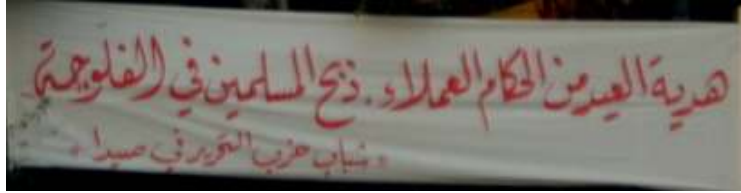 هدية العيد من الحكام العملاء . ذبح المسلمين في الفلوجة
" شباب حزب التحرير في صيدا "